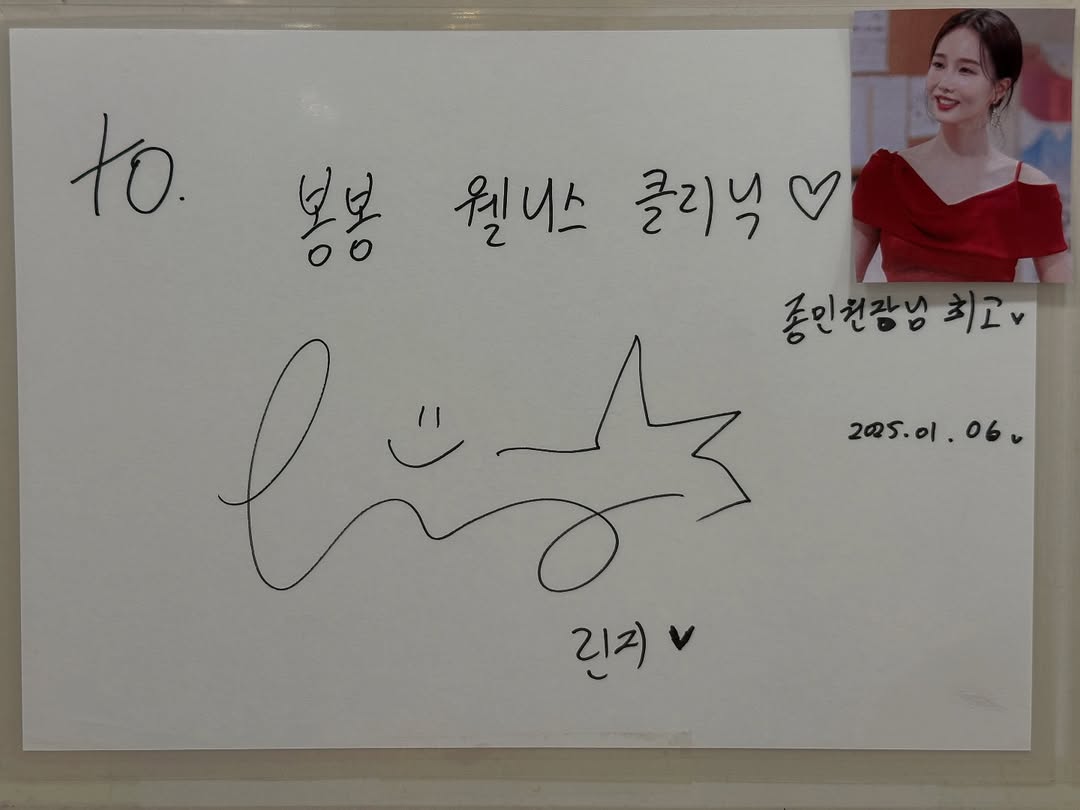 to.
봉봉 웰니스 클리닉 ♡
종민원장님 최고♥
2025.01.06.♥
린지 ♥